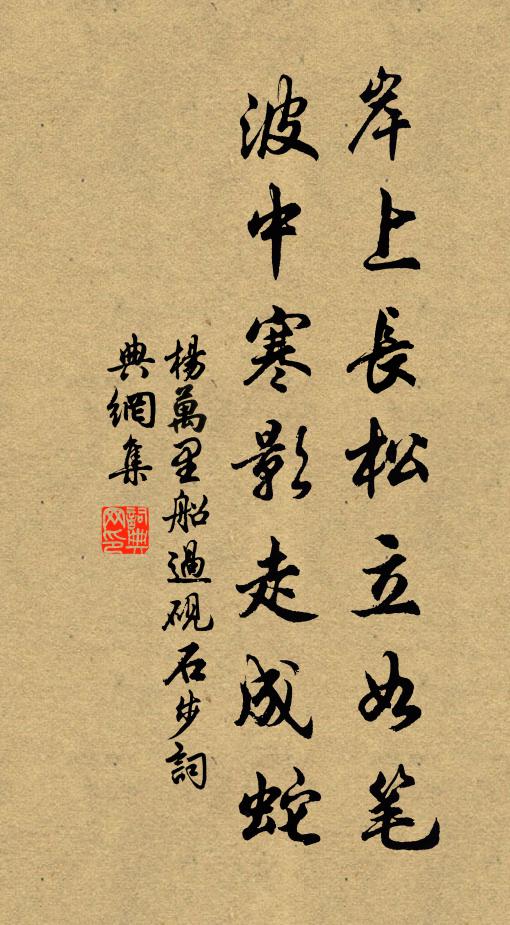 岸上長松立如笔
波中寒影走成蛇
楊萬里船過硯石步詞
典網集
詞典网印